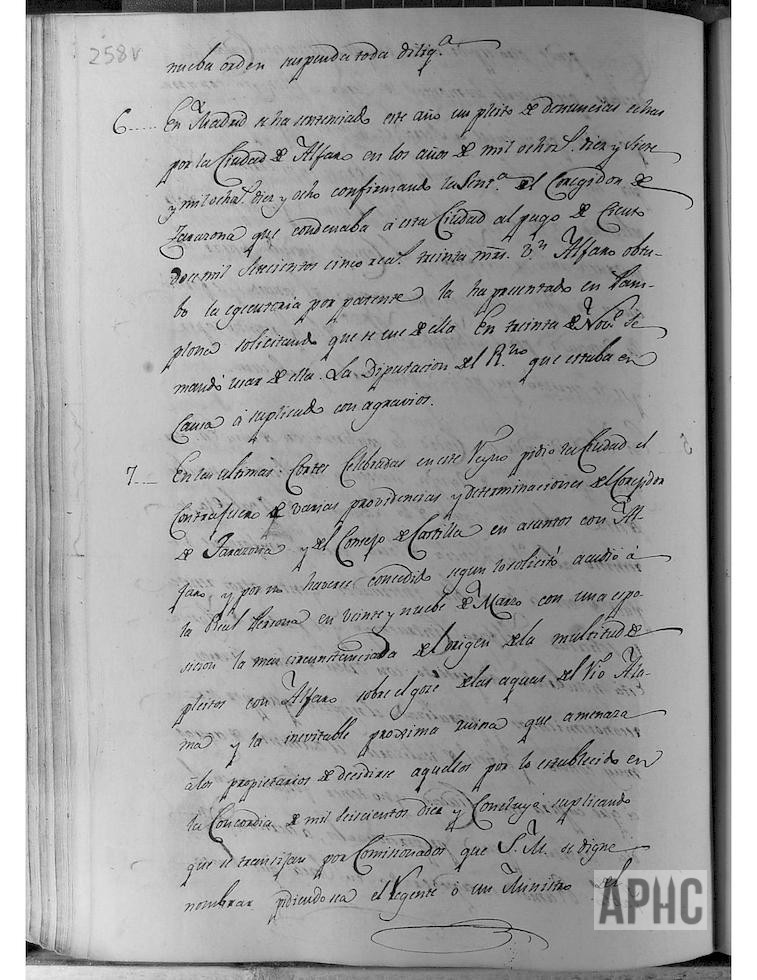 258v
nueba orden suspenda toda dilig.a
6..... En Madrid se ha sentenciado este año un pleito de denuncias echas
por la Ciudad de Alfaro en los años de mil ochos.s diez y siete
y mil ochos.s diez y ocho confirmando la Sent.a del Coregidor de
Tarazona que condenaba á esta Ciudad al pago de Ciento
Doce mil Seiscientos cinco rea.s treinta mrs. v.n Alfaro obtu-
bo la egecutoria por patente la ha presentado en Pam-
plona solicitando que se use de ella En treinta de Nov.e se
mandó usar de ella. La Diputacion del R.no que estaba en
Causa á suplicado con agravios.
7.... En las ultimas Cortes Celebradas en este Reyno pidió la Ciudad el
Contrafuero de varias providencias y determinaciones del Coregidor
de Tarazona y del Consejo de Castilla en asuntos con Al-
faro y por no haverse concedido segun lo solicitó acudió á
la Real Persona en veinte y nuebe de Marzo con una espo-
sicion la mas circunstanciada del origen de la multitud de
pleitos con Alfaro sobre el goze de las aguas del Rio Ala-
ma y la inevitable proxima ruina que amenaza
á los propietarios de decidirse aquellos por lo establecido en
la Concordia de mil seiscientos diez y Concluyó suplicando
que se transijan por Comisionados que S. M. se digne
nombrar pidiendo sea el Regente ó un Ministro del
APHC